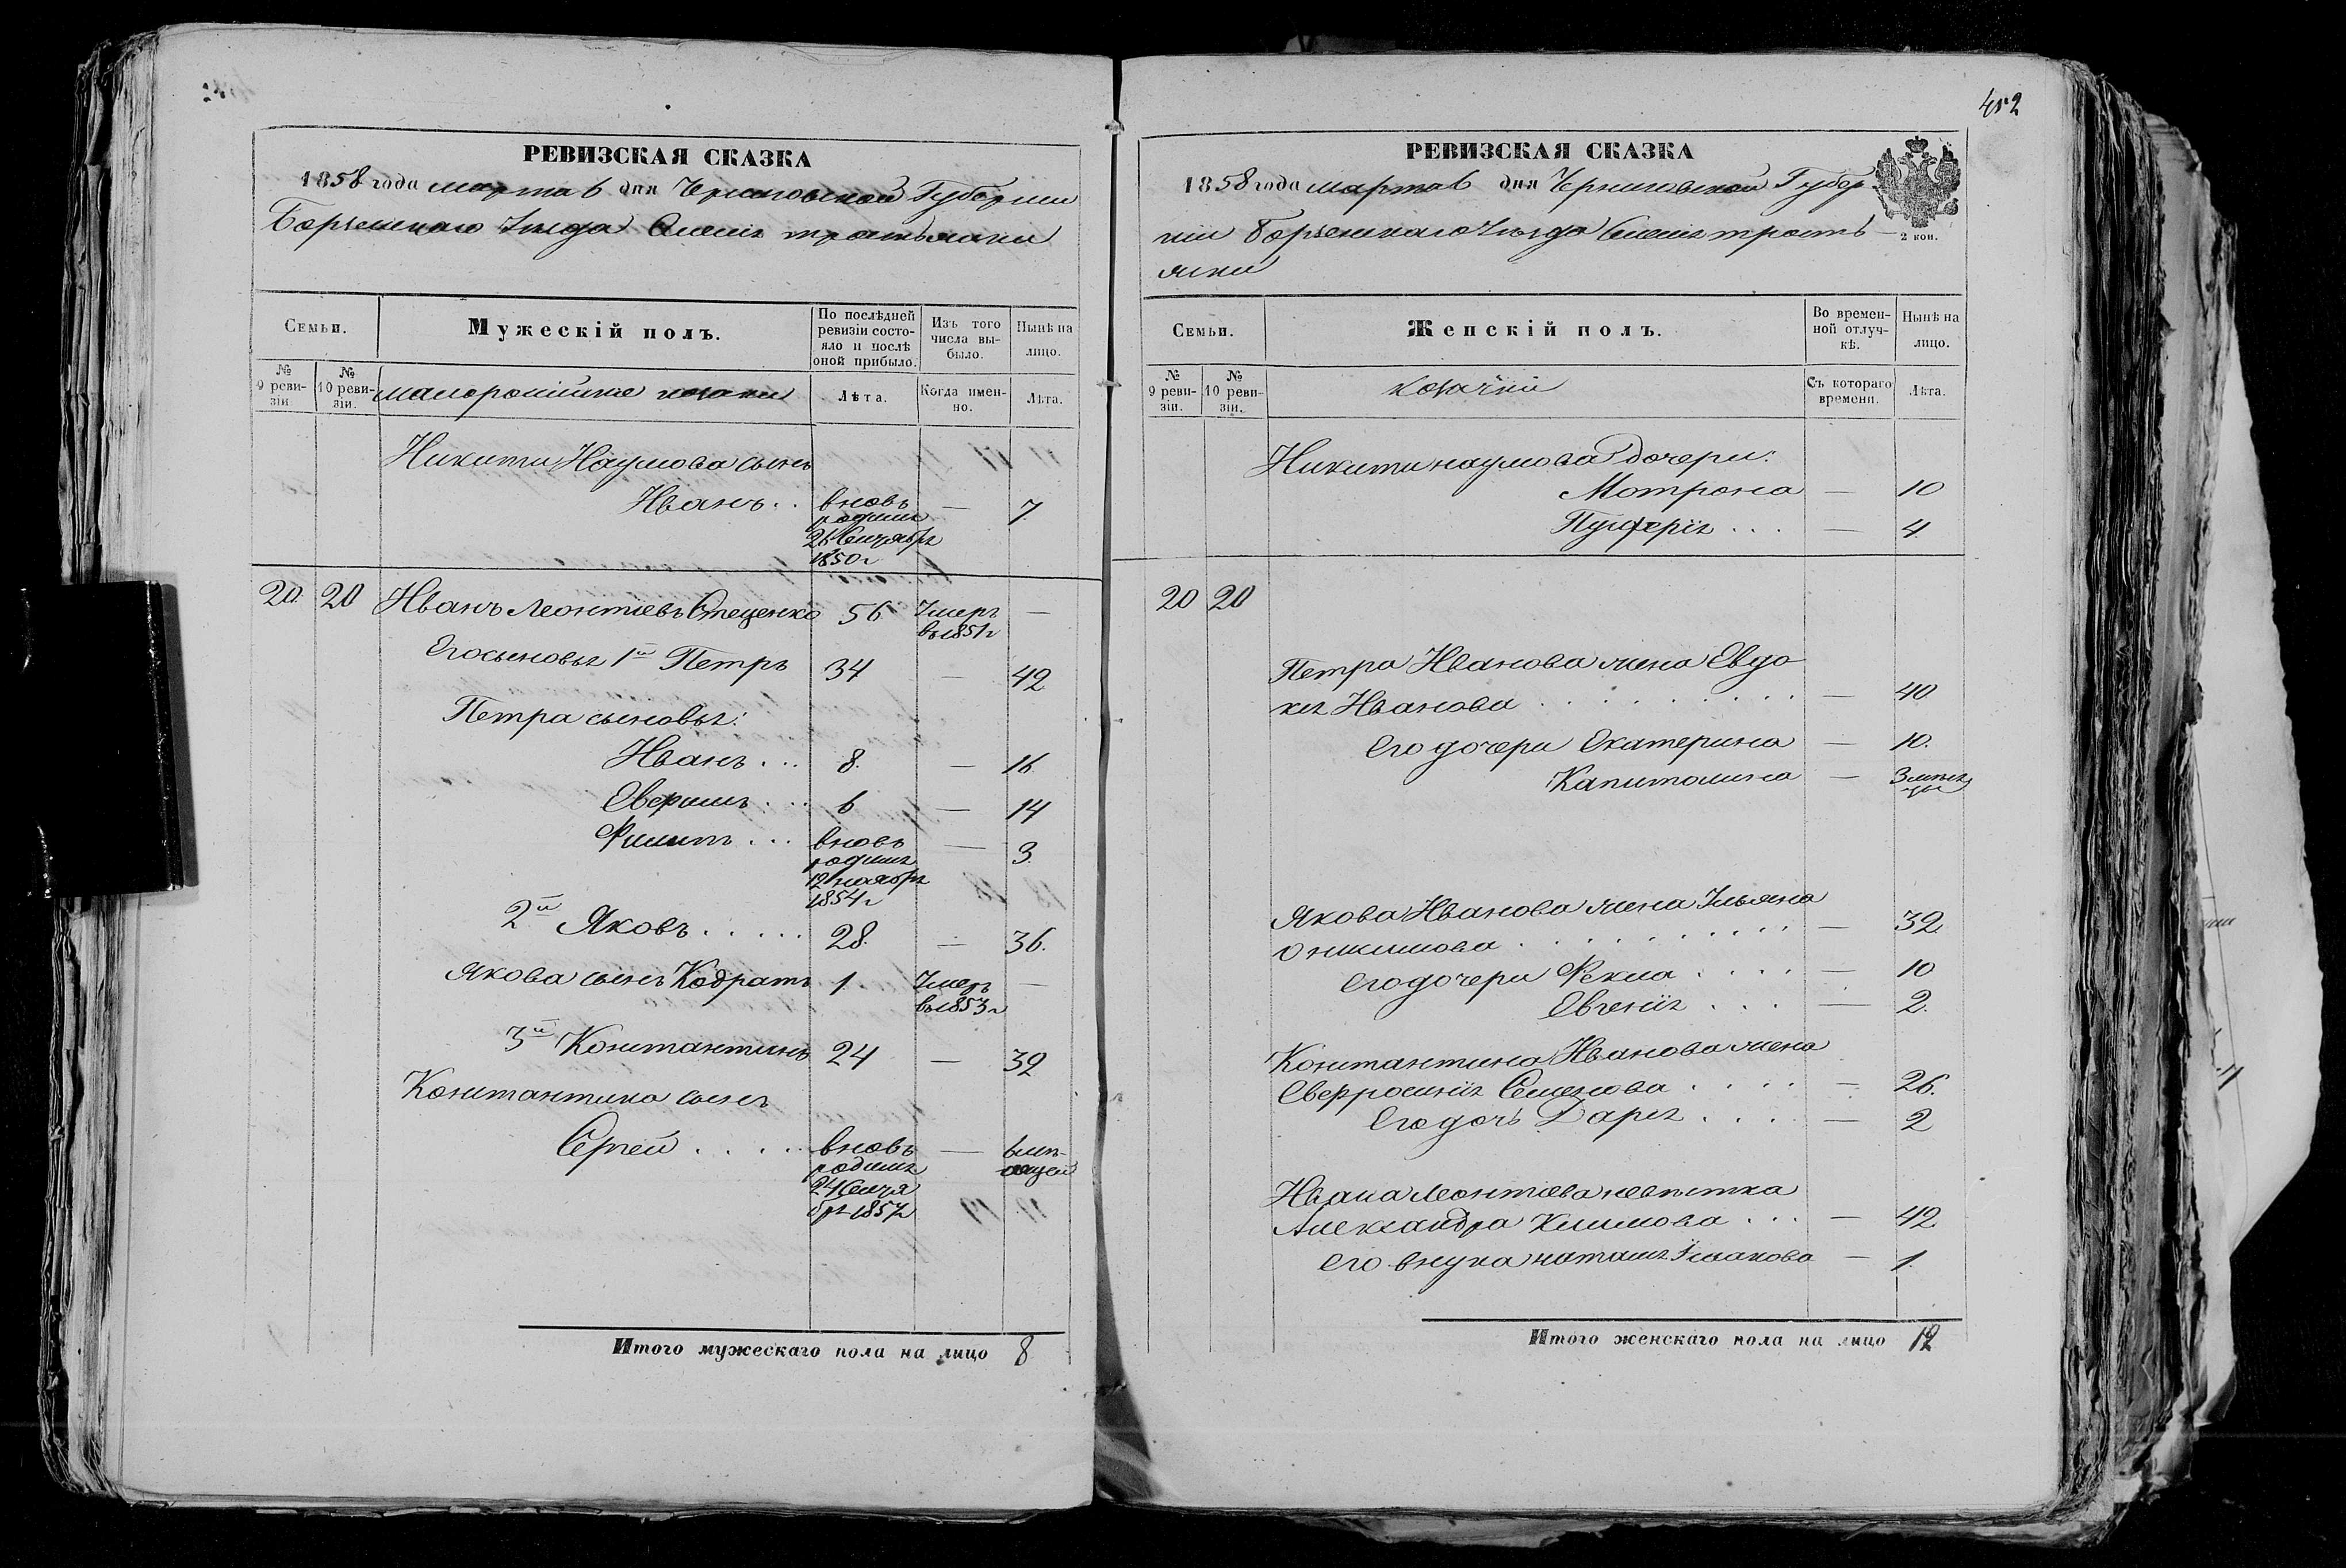 РЕВИЗСКАЯ СКАЗКА
1858 года марта 6 дня Черниговской Губернии
Борзенскаго Уезда Селенія тростянки
Семьи.
Мужескій полъ.
По послѣдней ревизіи состояло и послѣ оной прибыло.
Изъ того числа выбыло.
Нынѣ на лицо.
№ 9 ревизіи.
№ 10 ревизіи.
малоросійские козаки
Лѣта.
Когда именно.
Лѣта.
Никити Наумова сынъ
Иванъ . . вновь родился 26 Сентября 1850 г — 7
20 20 Иванъ Леонтіевъ Стеценко 56 Умеръ въ 1851 г —
Его сыновья 1й Петръ 34 — 42
Петра сыновья:
Иванъ . . . 8. — 16
6 — 14
Филипъ . . . вновь родился 12 ноября 1854 г — 3
2й Яковъ . . . . . 28. — 36.
Якова сынъ Кодратъ 1 Умеръ въ 1853 г —
3й Константинъ 24 — 32
Константина сынъ
Сергей . . . . вновь родился 24 Сентября 1857 г — 6 месяцей
Итого мужескаго пола на лицо 8
452
РЕВИЗСКАЯ СКАЗКА
1858 года марта 6 дня Черниговской Губер
ніи Борзенскаго Уезда Селенія трость
янки
2 коп.
Семьи.
Женскій полъ.
Во временной отлучкѣ.
Нынѣ на лицо.
№ 9 ревизіи.
№ 10 ревизіи.
козачки
Съ котораго времени.
Лѣта.
Никити наумова дочери:
Мотрона — 10
— 4
20 20
Петра Иванова жена Евдо
кія Иванова . . . . . . . . . — 40
Его дочери Екатерина — 10.
Капитолина — 3 месяцы
Якова Иванова жена Ульяна
Онисимова . . . . . . . . . . — 32.
Его дочери Фекла . . . . — 10
Евгенія . . . — 2.
Константина Иванова жена
Евфросинія Семенова . . . . — 26.
Его дочь Дарія . . . . — 2
Ивана Леонтіева невѣстка
Александра Климова . . . — 42
Его внука наталія — 1.
Итого женскаго пола на лицо 12